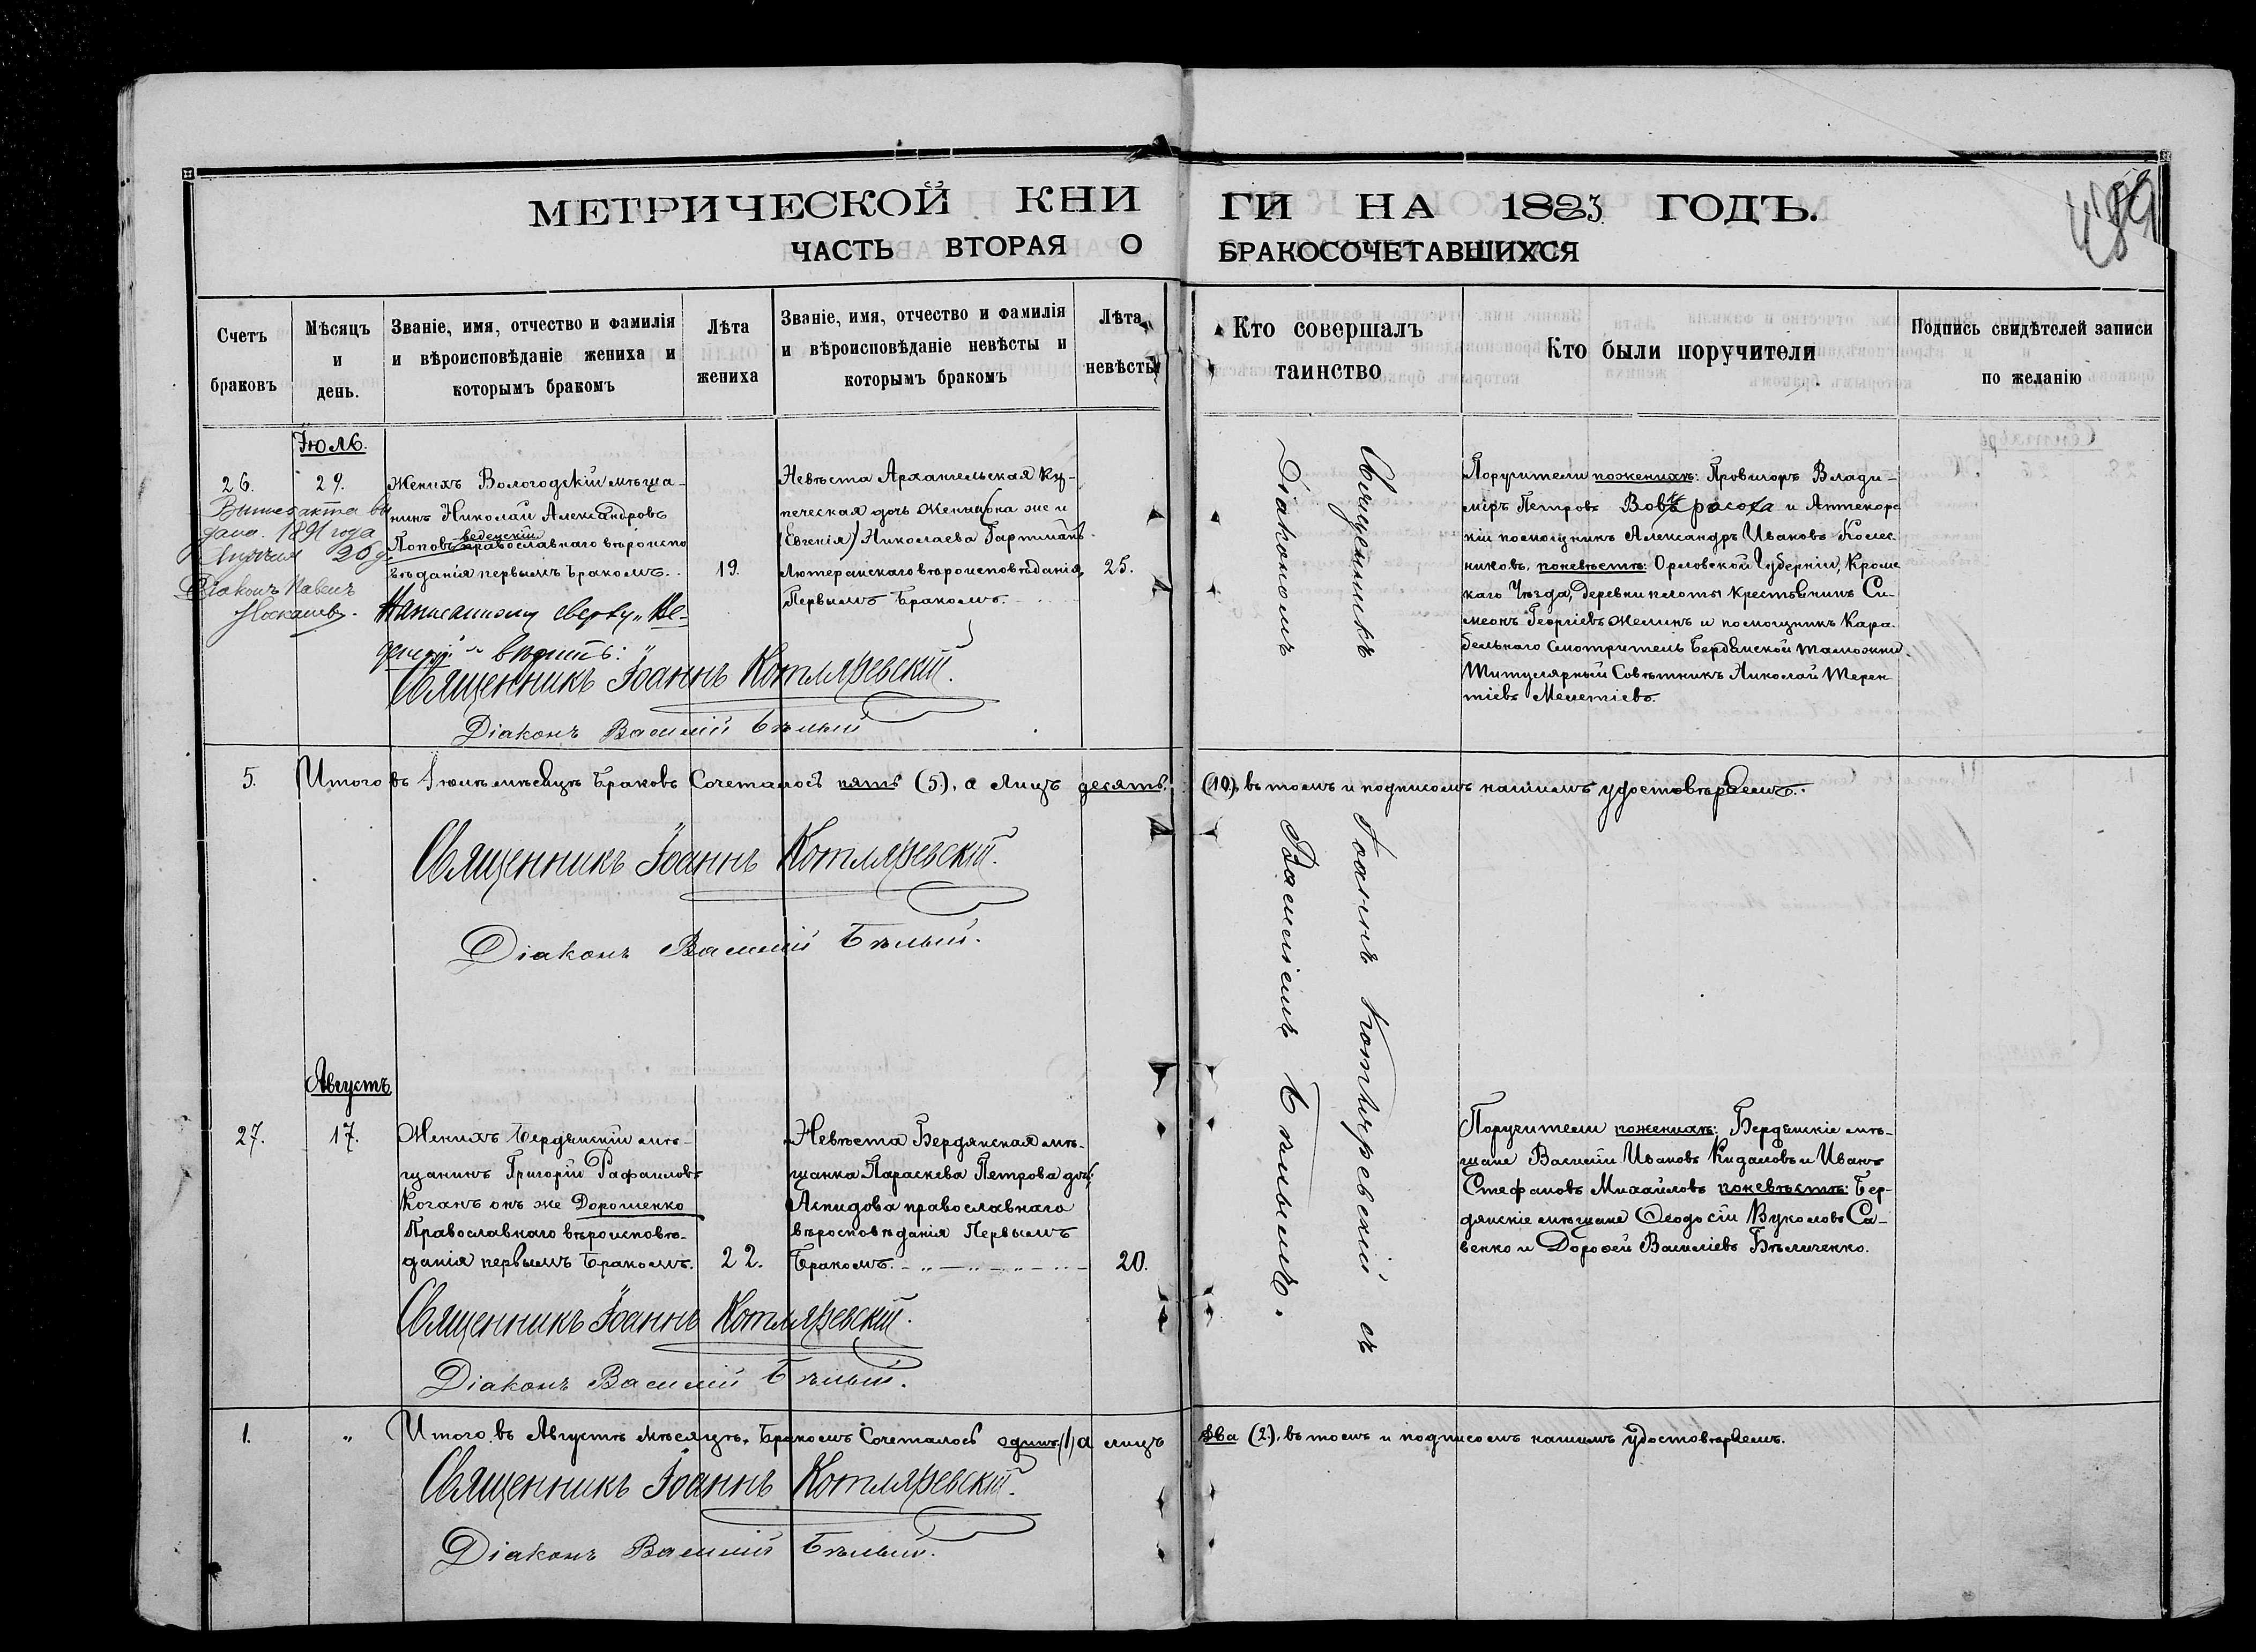 МЕТРИЧЕСКОЙ КНИ
ЧАСТЬ ВТОРАЯ О
Счетъ браковъ
Мѣсяцъ и день.
Званіе, имя, отчество и фамилія
и вѣроисповѣданіе жениха и
которымъ бракомъ
Лѣта жениха
Званіе, имя, отчество и фамилія
и вѣроисповѣданіе невѣсты и
которымъ бракомъ
Лѣта невѣсты
Іюль.
26.
29.
дано. 1891 года
20
Діаконъ Павелъ
Женихъ Вологодскій мѣща-
нинъ Николай Александровъ
веденскій
Поповъ православнаго вѣроиспо
вѣданія первымъ бракомъ.
19.
Написанному сверху „Ве-
денскій“ вѣрить:
Невѣста Архангельская ку-
печеская дочь Женни она же и
(Евгенія) Николаева Гартманъ
Лютеранскаго вѣроисповѣданія,
Первымъ бракомъ.
25.
Священникъ Іоаннъ Котляревскій.
Діаконъ Василій Бѣлый
5.
Итого въ Іюлѣ мѣсяцѣ браковъ Сочеталось пять (5), а лицъ десять
Священникъ Іоаннъ Котляревскій.
Діаконъ Василій Бѣлый.
Августъ
27.
17.
Женихъ Бердянскій мѣ-
щанинъ Григорій Рафаиловъ
Коганъ онъ же Дорошенко
Православнаго вѣроисповѣ-
данія первымъ бракомъ.
22.
Невѣста Бердянская мѣ-
щанка Параскева Петрова дочь
Аспидова православнаго
вѣросповѣданія Первымъ
бракомъ.
20.
Священникъ Іоаннъ Котляревскій.
Діаконъ Василій Бѣлый.
1.
„
Итого въ Августѣ мѣсяцѣ, бракомъ Сочеталось одинъ (1) а лицъ
Священникъ Іоаннъ Котляревскій.
Діаконъ Василій Бѣлый.
ГИ НА 1883 ГОДЪ.
БРАКОСОЧЕТАВШИХСЯ
489
Кто совершалъ таинство
Кто были поручители
Подпись свидѣтелей записи
по желанію
Священникъ Іоаннъ Котляревскій съ
Діакономъ Василіемъ Бѣлымъ.
Поручители по женихѣ: Провизоръ Влади-
міръ Петровъ и Аптекарс
кій помощникъ Александръ Ивановъ Колес
никовъ, по невѣстѣ: Орловской Губерніи, Кромс
каго Уѣзда, деревни крестьянинъ Си-
меонъ Георгіевъ и помощникъ Кара-
бельнаго Смотрителя Бердянской таможни
Титулярный Совѣтникъ Николай Терен
тіевъ Мелетіевъ.
(10), въ томъ и подписомъ нашимъ удостовѣряемъ.
Поручители по женихѣ: Бердянскіе мѣ-
щане Василій Ивановъ Кидаловъ и Иванъ
Стефановъ Михайловъ по невѣстѣ: Бер-
дянскіе мѣщане Ѳеодосій Вуколовъ Са-
венко и Дороѳей Василіевъ Бѣличенко.
два (2), въ томъ и подписомъ нашимъ удостовѣряемъ.